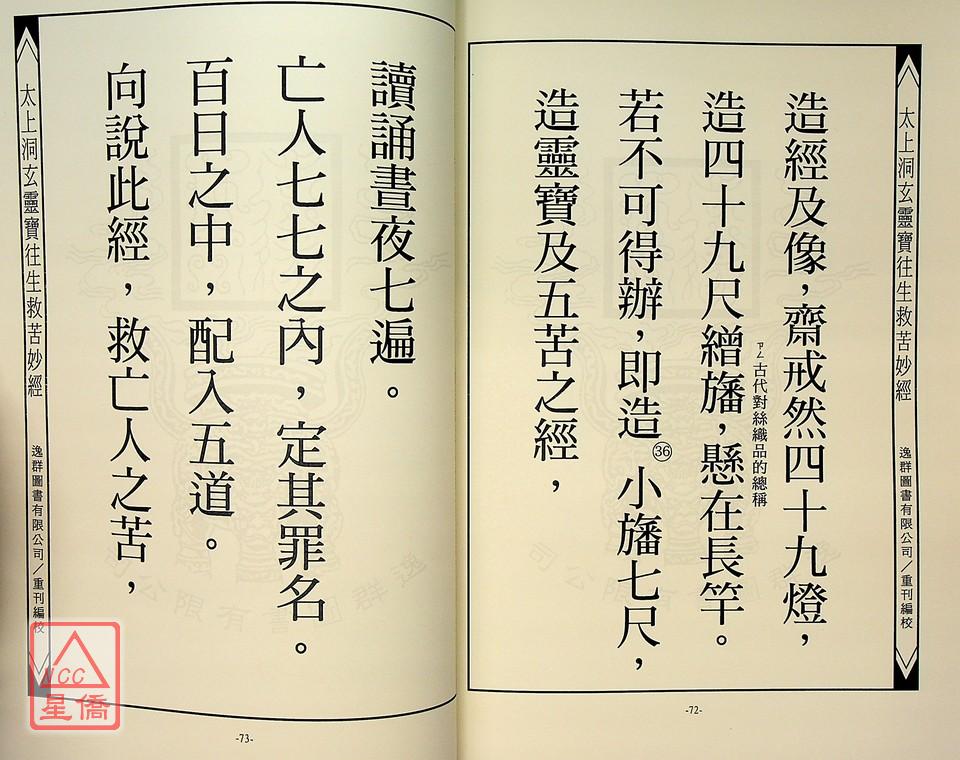 太上洞玄靈寶往生救苦妙經
逸群圖書有限公司/重刊編校
造經及像,齋戒然四十九燈,
造四十九尺繒旛,懸在長竿。
ㄗㄥ古代對絲織品的總稱
若不可得辦,即造㊱小旛七尺,
造靈寶及五苦之經,
-72-
讀誦晝夜七遍。
亡人七七之內,定其罪名。
百日之中,配入五道。
向說此經,救亡人之苦,
太上洞玄靈寶往生救苦妙經
逸群圖書有限公司/重刊編校
-73-
NCC
星僑